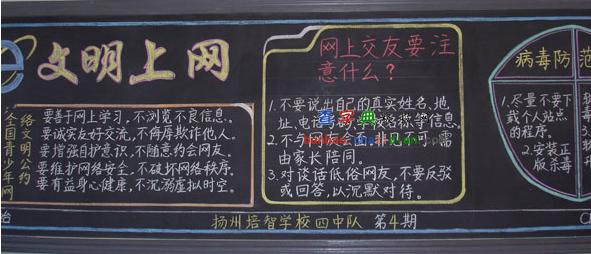 文明上网
全国青少年网
络文明公约
要善于网上学习,不浏览不良信息。
要诚实友好交流,不侮辱欺诈他人。
要增强自护意识,不随意约会网友。
要维护网络安全,不破坏网络秩序。
要有益身心健康,不沉溺虚拟时空。
网上交友要注
意什么?
1.不要说出自己的真实姓名、地
址、电话
学校名称等信息。
2.不与网友会面
非见不可,需
由家长陪同。
3.对谈话低俗网友,不要反驳
或回答,以沉默对待。
病毒防范
1.尽量不要下
载个人站点
的程序。
2.安装正
版杀毒
台
扬州培智学校四中队 第4期
查字典